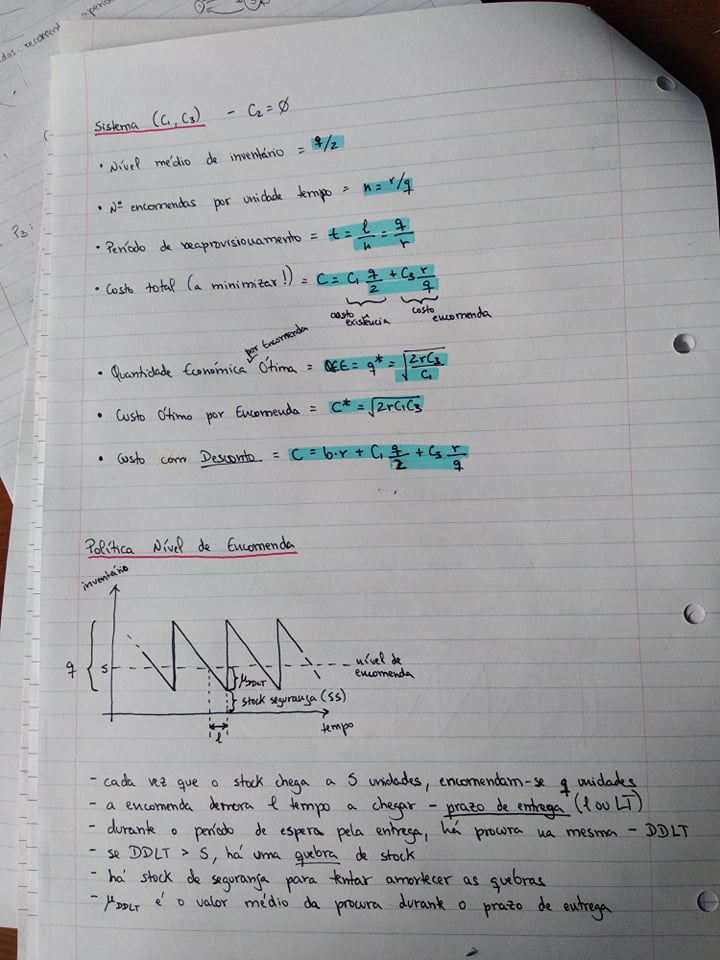 Sistema (C1, C3) - C2 = Ø
• Nível médio de inventário = q/2
• Nº encomendas por unidade tempo = n = r/q
• Período de reaprovisionamento = t = l/n = q/r
• Costo total (a minimizar!) = C = C1 q/2 + C3 r/q
custo existência costo encomenda
por Encomenda
• Quantidade Económica Ótima = QEE = q* = √(2rC3/C1)
• Custo Ótimo por Encomenda = C* = √2rC1C3
• Custo com Desconto = C = b·r + C1 q/2 + C3 r/q
Política Nível de Encomenda
inventário
q
S
nível de encomenda
μDDLT
stock segurança (SS)
l
tempo
- cada vez que o stock chega a S unidades, encomendam-se q unidades
- a encomenda demora l tempo a chegar - prazo de entrega (l ou LT)
- durante o período de espera pela entrega, há procura na mesma - DDLT
- se DDLT > S, há uma quebra de stock
- há stock de segurança para tentar amortecer as quebras
- μDDLT é o valor médio da procura durante o prazo de entrega